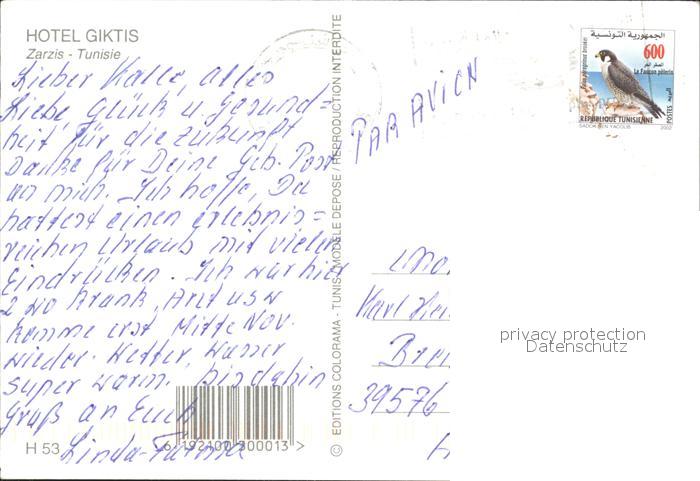 HOTEL GIKTIS
Zarzis - Tunisie
Lieber Kalle, alles
Liebe, Glück u. Gesund=
heit für die Zukunft
Danke für Deine Geb. Post
an mich. Ich hoffe, Du
hattest einen erlebnis=
reichen Urlaub mit vielen
Eindrücken. Ich war hier
2 Wo krank, Arzt usw
komme erst Mitte Nov.
wieder. Wetter, Wasser
super warm. bis dahin
Gruß an Euch
Linda-Fatma
H 53
6 192100 300013 >
© EDITIONS COLORAMA - TUNIS MODELE DEPOSE / REPRODUCTION INTERDITE
PAR AVION
الجمهورية التونسية
600
Le Faucon pèlerin
البريد
POSTES
REPUBLIQUE TUNISIENNE
SADOK BEN YACOUB 2002
Karl Hei
39576
privacy protection
Datenschutz